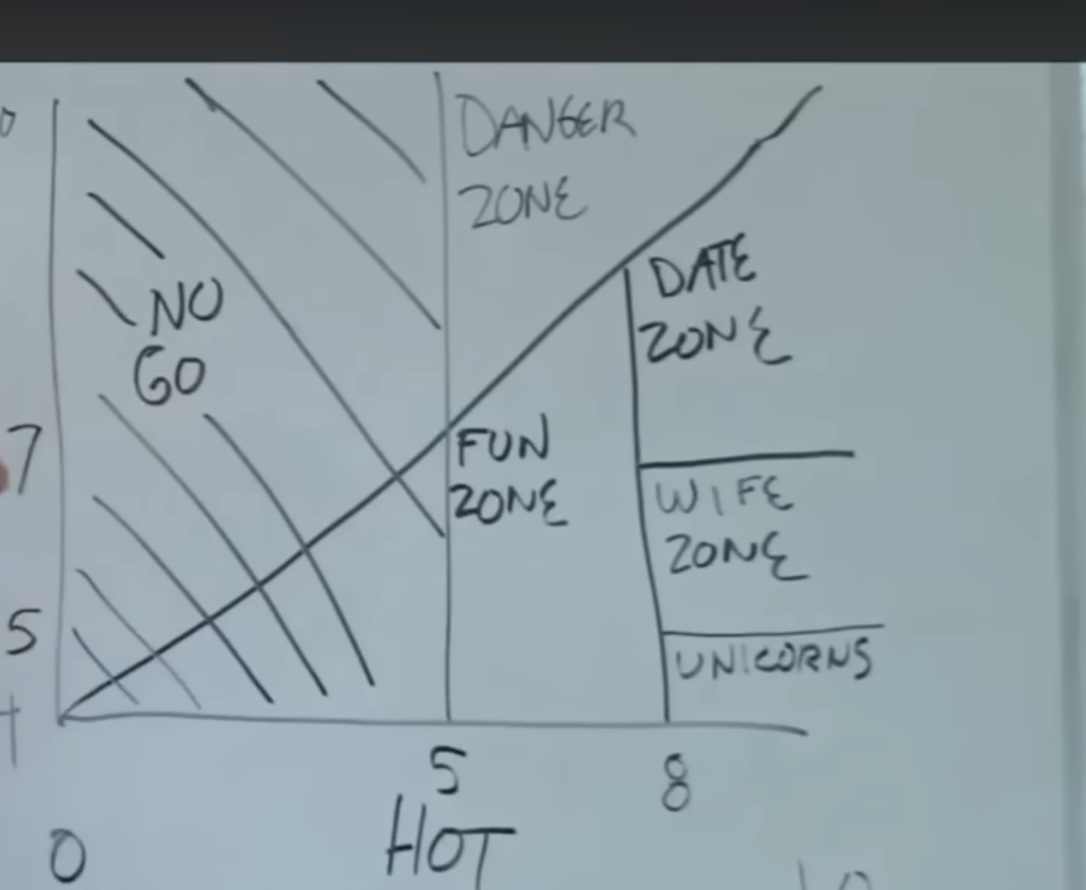 DANGER
ZONE
NO
GO
DATE
ZONE
7
FUN
ZONE
WIFE
ZONE
5
UNICORNS
5
8
HOT
0